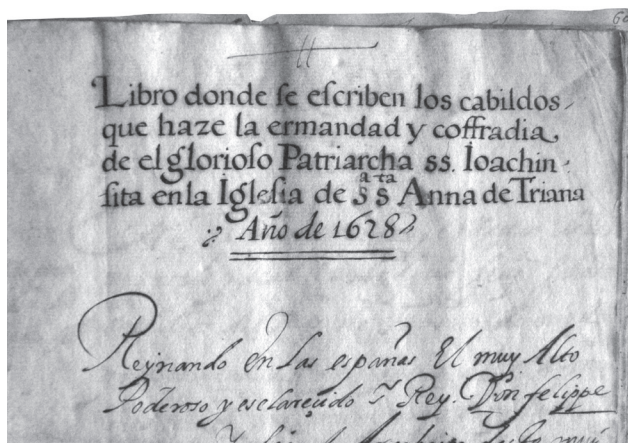 Libro donde se escriben los cabildos
que haze la ermandad y coffradia
de el glorioso Patriarcha ss. Ioachin
sita en la Iglesia de sª sta Anna de Triana
Año de 1628
Reynando en las españas El muy Alto
Poderoso y esclarecido Sr Rey. Don felippe